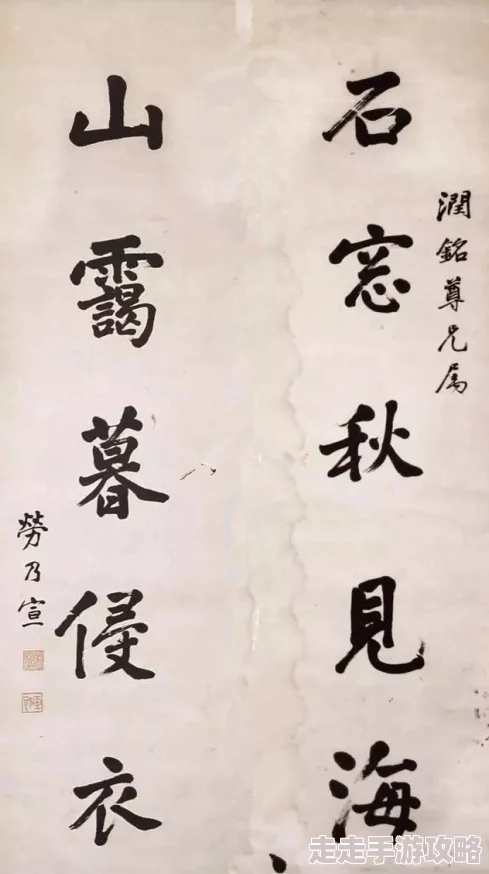 潤銘尊兄属
石窓秋見海
山靄暮侵衣
勞乃宣
走走手游攻略